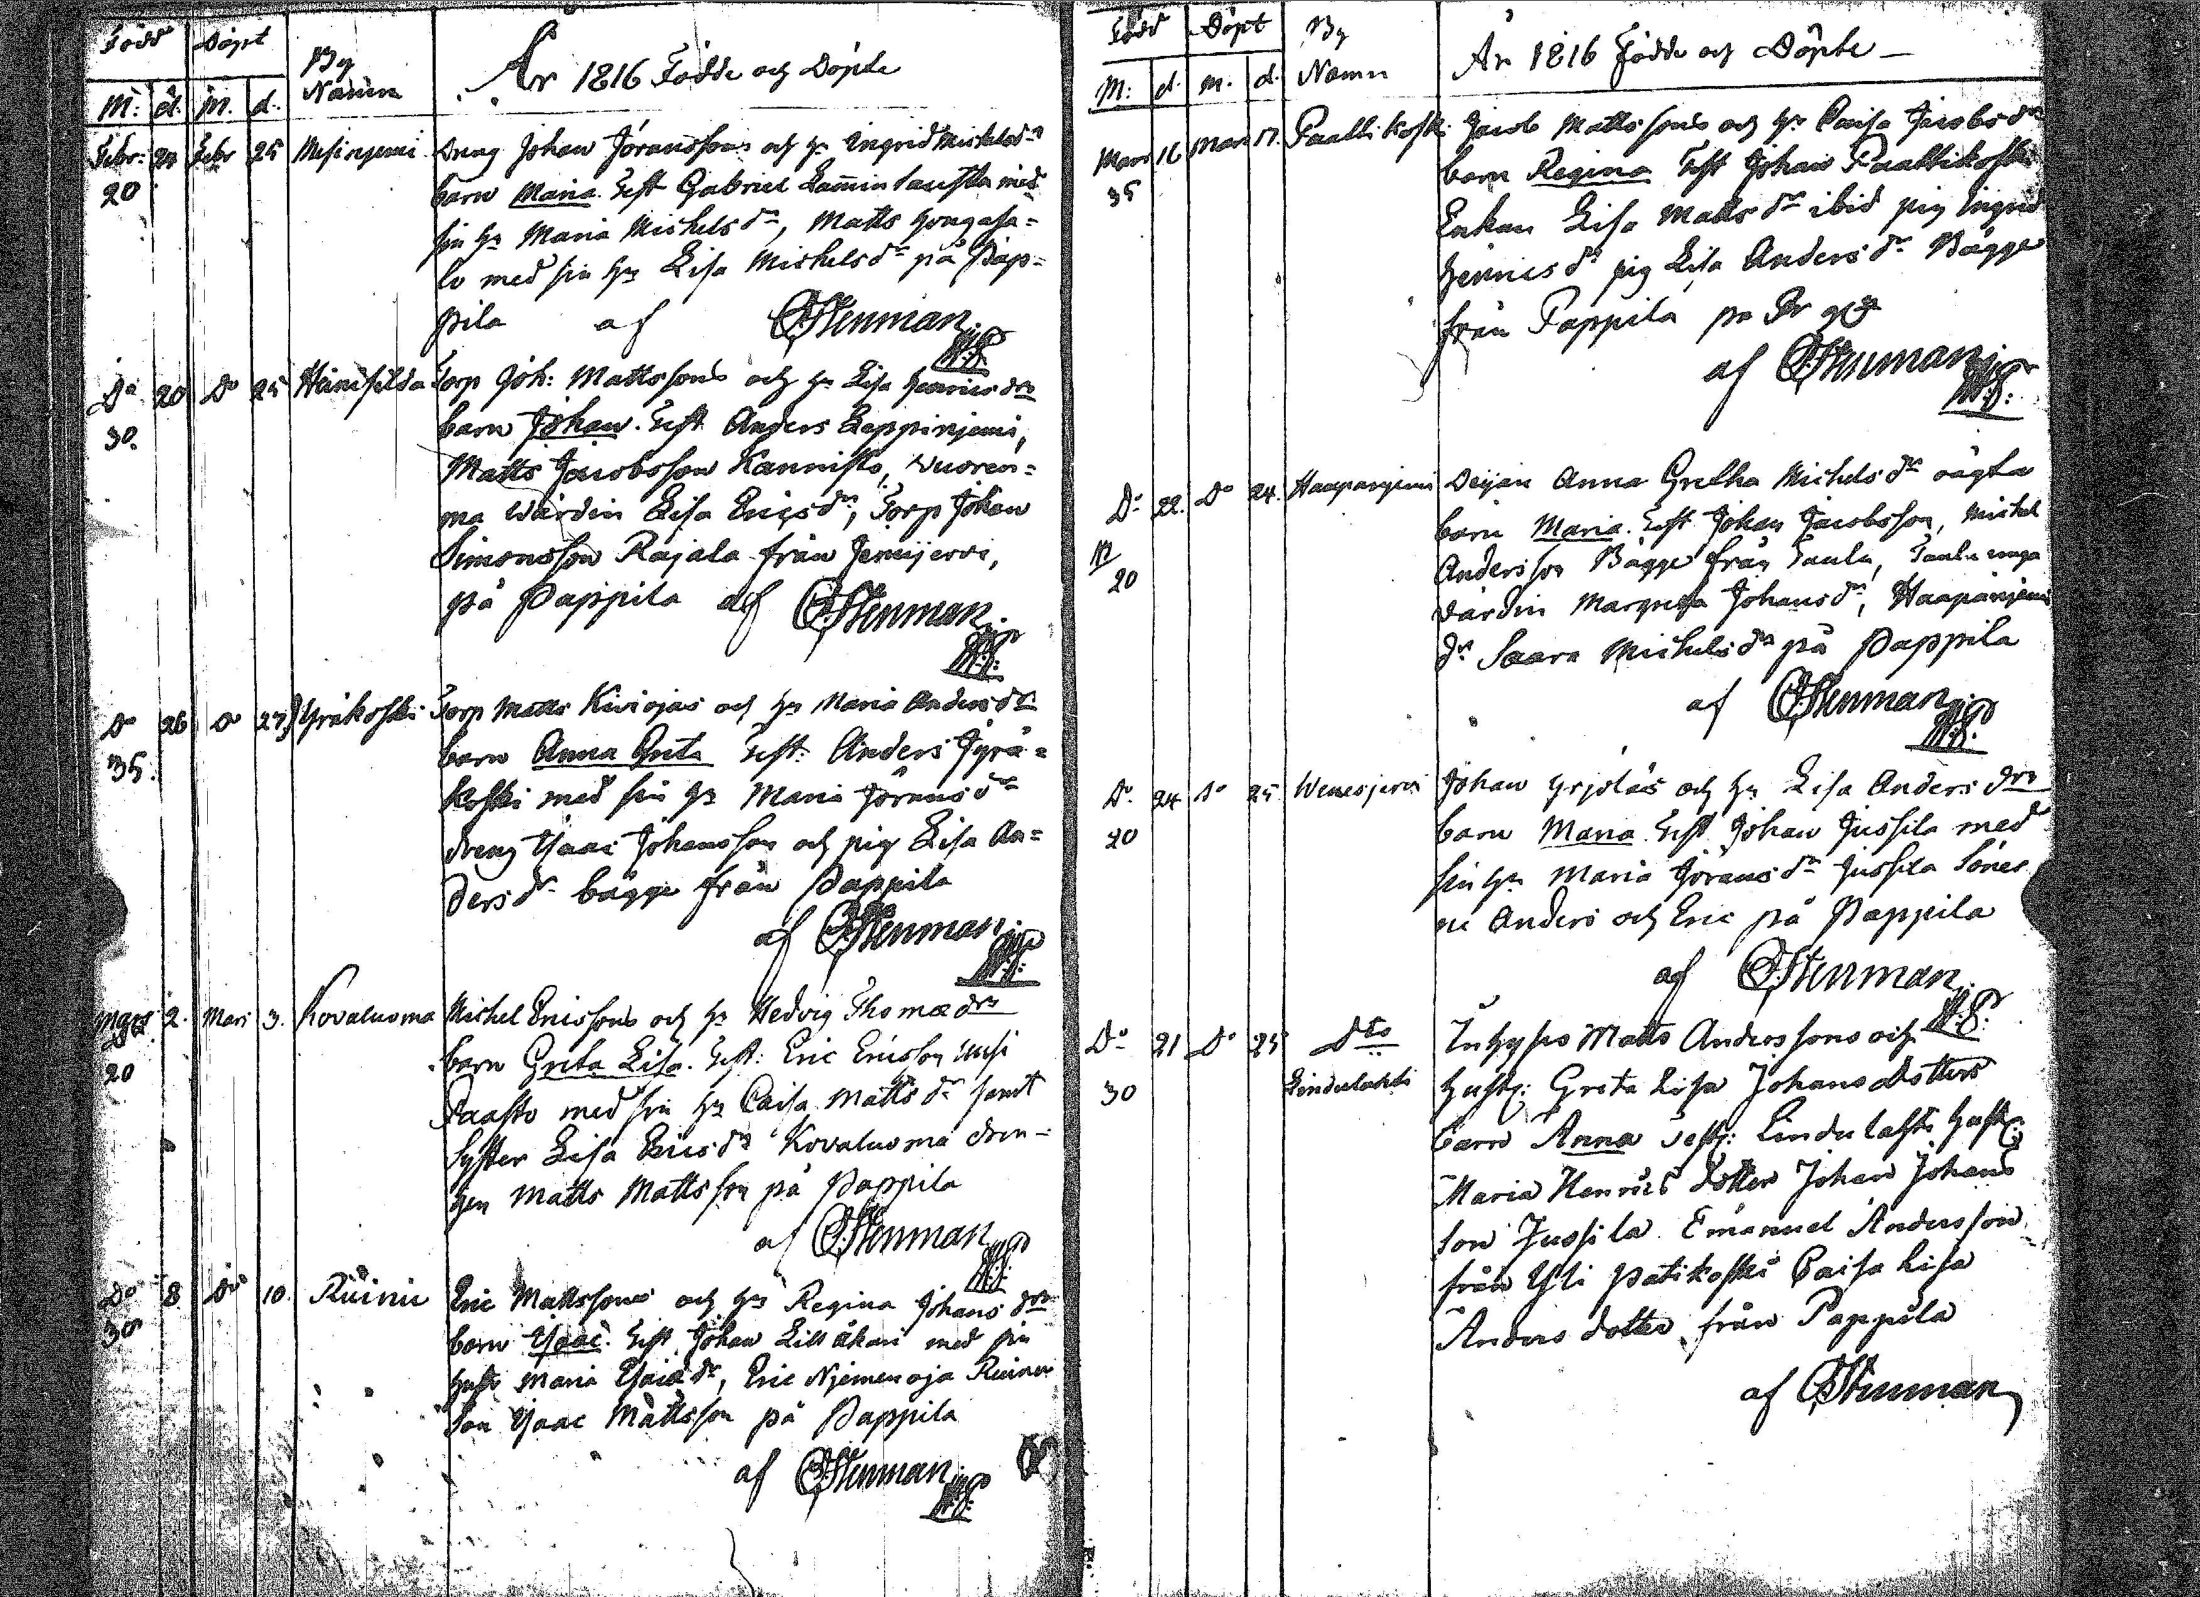 Född Döpt By
Namn
År 1816 Födde och Döpte
M: d. m. d.
Febr: 24 Febr 25 Mesinjemi Dreng Johan Jöranssons och h. Ingrid Michelsdr
20 barn Maria. Test. Gabriel Lamminlausta med
sin h. Maria Michels dr, Matts Hongasa=
lo med sin h. Lisa Michels dr på Pap=
pila af C. Stenman
Do 20 Do 25 Heinisilda Torp Joh: Mattssons och h. Lisa Henrics dr
30. barn Johan. Test. Anders Leppinjemi,
Matts Jacobsson Kannisto, Wuoren=
ma Wärdin Lisa Erics dr, Torp Johan
Simonsson Rajala från Jemijervi,
på Pappila af C. Stenman
Do 26 Do 27 Jyräkoski Torp Matts Kiviojas och h. Maria Anders dr
35. barn Anna Greta Test: Anders Jyrä=
koski med sin h. Maria Jörans dr
dreng Isaac Johansson och pig Lisa An=
ders dr bägge från Pappila
af C. Stenman
Mars 2. Mars 3. Kovaluoma Michel Ericssons och h. Hedvig Thomæ dr
20 barn Greta Lisa. Test: Eric Ericsson Uusi
Paasto med sin h. Caisa Matts dr samt
Syster Lisa Erics dr Kovaluoma dren=
gen Matts Mattsson på Pappila
af C. Stenman
Do 8 Do 10. Riiinii Eric Mattssons och h. Regina Johans dr
30 barn Isaac. Test. Johan Lillåkari med sin
hust Maria Isaics dr, Eric Njemenoja Riinin
Son Isaac Mattsson på Pappila
af C. Stenman
Född Döpt By
Namn
År 1816 Födde och Döpte
M: d. m. d.
Mars 16 Mars 17. Paattikoski Jacob Mattssons och h. Caisa Jacobs dr
35 barn Regina Test Johan Paattikoski
Enkan Lisa Matts dr ibid pig Ingrid
Henrics dr pig Lisa Anders dr Bägge
från Pappila
af C. Stenman
Do 22. Do 24. Haapanjemi Deijan Anna Gretha Michels dr oägta
20 barn Maria. Test Johan Jacobsson, Michel
Andersson Bägge från Taulu, Taulu unga
värdin Margreta Johans dr, Haapanjemi
dr Saara Michels dr på Pappila
af C. Stenman
Do. 24 Do 25 Wenesjervi Johan Yrjöläs och h. Lisa Anders dr
20 barn Maria Test Johan Jussila med
sin h. Maria Jörans dr Jussila Söner
ne Anders och Eric på Pappila
af C. Stenman
Do 21 Do 25 Dto Inhyses Matts Anderssons och
30 Lindulahti hust: Greta Lisa Johans dotters
barn Anna test: Lindulahti hust:
Maria Henrics dotter Johan Johans
son Jussila Emanuel Andersson
från Yli Patikoski Caisa Lisa
Anders dotter från Pappila
af C. Stenman